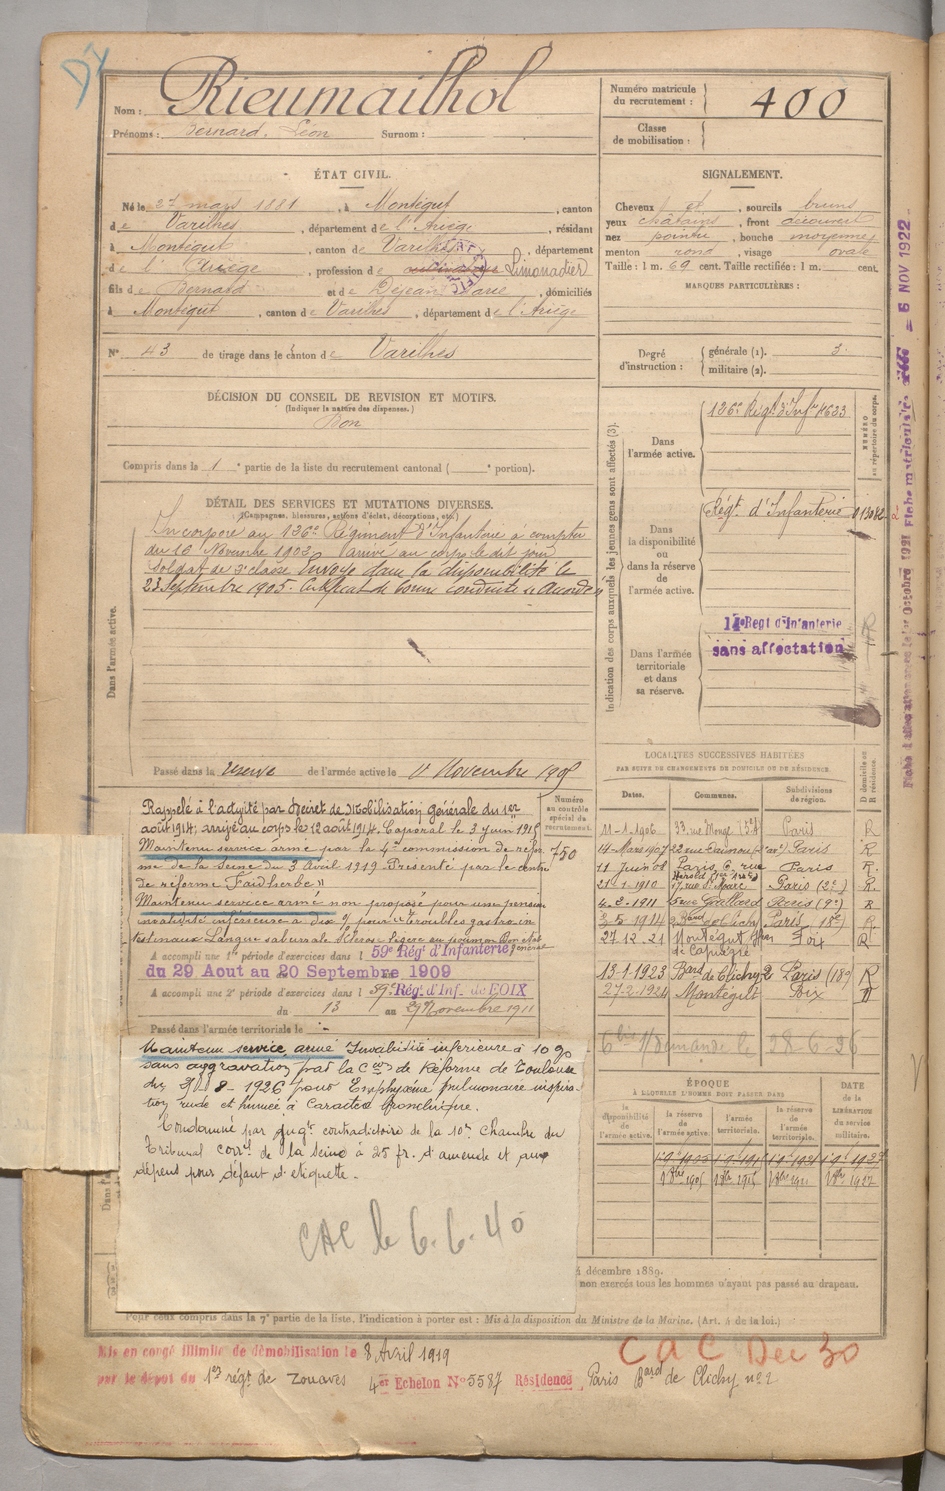 Nom : Rieumailhol
Prénoms : Bernard, Léon Surnom :
Numéro matricule du recrutement : 400
Classe de mobilisation :
ÉTAT CIVIL.
Né le 27 mars 1881, à Montégut, canton
de Varilhes, département de l'Ariège, résidant
à Montégut, canton de Varilhes, département
de l'Ariège, profession de Limonadier
fils de Bernard et de Dejean Marie, domiciliés
à Montégut, canton de Varilhes, département de l'Ariège
N° 43 de tirage dans le canton de Varilhes
SIGNALEMENT.
Cheveux et, sourcils bruns
yeux châtains, front découvert
nez pointu, bouche moyenne
menton rond, visage ovale
Taille : 1 m. 69 cent. Taille rectifiée : 1 m. cent.
MARQUES PARTICULIÈRES :
Degré d'instruction : générale (1). 3
militaire (2).
DÉCISION DU CONSEIL DE REVISION ET MOTIFS.
(Indiquer la nature des dispenses.)
Bon
Compris dans la 1e partie de la liste du recrutement cantonal ( e portion).
DÉTAIL DES SERVICES ET MUTATIONS DIVERSES.
(Campagnes, blessures, actions d'éclat, décorations, etc.)
Dans l'armée active.
Incorporé au 126e Régiment d'Infanterie à compter
du 16 Novembre 1902, arrivé au corps le dit jour
soldat de 2e classe Envoyé dans la disponibilité le
23 Septembre 1905. Certificat de bonne conduite accordé
Passé dans la réserve de l'armée active le 1er Novembre 1905
Indication des corps auxquels les jeunes gens sont affectés (3).
NUMÉRO au répertoire du corps.
Dans l'armée active.
126e Régt d'Infie 4633
Dans la disponibilité ou dans la réserve de l'armée active.
Régt. d'Infanterie
Dans l'armée territoriale et dans sa réserve.
14e Regt d'Infanterie
sans affectation
Numéro au contrôle spécial du recrutement.
750
Rappelé à l'activité par Décret de Mobilisation générale du 1er
août 1914, arrivé au corps le 12 août 1914. Caporal le 3 juin 1915
Maintenu service armé par la 4e commission de réfor-
me de la Seine du 3 Avril 1919. Présenté par le centre
de réforme Faidherbe
Maintenu service armé non proposé pour une pension
invalidité inférieure à dix % pour troubles gastro in
testinaux Langue saburrale Sclérose légère au poumon Bon état
général
A accompli une 1re période d'exercices dans l 59e Régt d'Infanterie
du 29 Aout au 20 Septembre 1909
A accompli une 2e période d'exercices dans l 59e Régt d'Inf. de FOIX
du 13 au 29 Novembre 1911
Passé dans l'armée territoriale le
LOCALITÉS SUCCESSIVES HABITÉES
PAR SUITE DE CHANGEMENTS DE DOMICILE OU DE RÉSIDENCE
Dates. Communes. Subdivisions de région. D domicile ou R résidence.
11-1-1906 33, rue Monge (5e) Paris R
14-Mars 1907 22 rue Daunou (2e arr) Paris R
11 Juin 08 Paris, 6, rue Hérold (1er arr) Paris R.
21-1-1910 17, rue St Marc Paris (2e) R.
4-2-1911 Gaillard Paris (9e) R.
3-5-1914 2 Bard de Clichy Paris 18e R.
27 12 21 Montégut Foix R
13-1-1923 Bard de Clichy 2 Paris (18e) R
27-2-1924 Montégut Foix D
28-6-26
ÉPOQUE
À LAQUELLE L'HOMME DOIT PASSER DANS
la disponibilité de l'armée active. la réserve de l'armée active. l'armée territoriale. la réserve de l'armée territoriale.
DATE de la LIBÉRATION du service militaire.
1er 9bre 1905 1er 9bre 1915 1er 9bre 1921 1er 9bre 1927
Maintenu service armé Invalidité inférieure à 10 %
sans aggravation par la Con de Réforme de Toulouse
du 8-1926 pour Emphysème pulmonaire inspira-
tion rude et humée à Caractère bronchique.
Condamné par jugt contradictoire de la 10e Chambre du
Tribunal corrl de la Seine à 25 fr. d'amende et aux
dépens pour défaut d'étiquette.
CAC le 6.6.40
décembre 1889.
non exercés tous les hommes n'ayant pas passé au drapeau.
Pour ceux compris dans la 7e partie de la liste, l'indication à porter est : Mis à la disposition du Ministre de la Marine. (Art. 4 de la loi.)
Mis en congé illimité de démobilisation le 8 Avril 1919
par le dépot du 1er régt de Zouaves 4er Echelon N° 5587 Résidence Paris Bard de Clichy n° 2
CAC Dec 30
5 NOV 1922